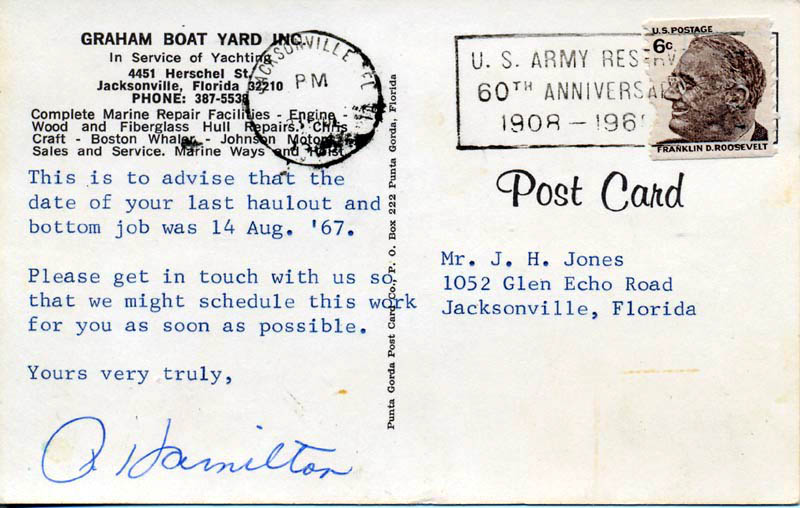 GRAHAM BOAT YARD INC.
In Service of Yachting
4451 Herschel St.
Jacksonville, Florida 32210
PHONE: 387-5538
Complete Marine Repair Facilities - Engine -
Wood and Fiberglass Hull Repairs. Chris
Craft - Boston Whaler - Johnson Motors
Sales and Service. Marine Ways and Hoist
This is to advise that the
date of your last haulout and
bottom job was 14 Aug. '67.
Please get in touch with us so
that we might schedule this work
for you as soon as possible.
Yours very truly,
Hamilton
JACKSONVILLE
PM
Punta Gorda Post Card Co., P. O. Box 222 Punta Gorda, Florida
U. S. ARMY RESERV
60TH ANNIVERSA
1908-196
U.S. POSTAGE
6c
FRANKLIN D. ROOSEVELT
Post Card
Mr. J. H. Jones
1052 Glen Echo Road
Jacksonville, Florida